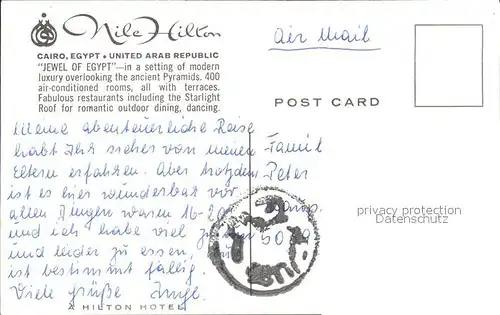 Nile Hilton
CAIRO, EGYPT • UNITED ARAB REPUBLIC
"JEWEL OF EGYPT"—in a setting of modern
luxury overlooking the ancient Pyramids. 400
air-conditioned rooms, all with terraces.
Fabulous restaurants including the Starlight
Roof for romantic outdoor dining, dancing.
Air Mail
POST CARD
Meine abenteuerliche Reise
habt Ihr sicher von meinen
Eltern erfahren. Aber trotzdem
ist es hier wunderbar vor
allen Dingen warm 16-20
und ich habe viel zu
und leider zu essen,
ist bestimmt fällig.
Viele Grüße Inge.
Famil
Peter
50
privacy protection
Datenschutz
A HILTON HOTEL